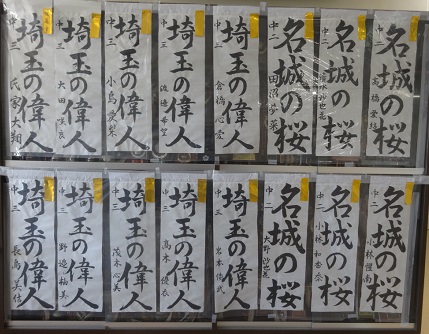 名城の桜
中二
名城の桜
中二
名城の桜
中二
田沼
埼玉の偉人
中三
倉橋心愛
埼玉の偉人
中三
渡邉希望
埼玉の偉人
中三
小島愛梨
埼玉の偉人
中三
太田
埼玉の偉人
中三
氏家大翔
名城の桜
中二
小林
名城の桜
中二
小林和香奈
名城の桜
中二
大野
埼玉の偉人
中三
岩本
埼玉の偉人
中三
高木優衣
埼玉の偉人
中三
茂木心美
埼玉の偉人
中三
野邉柚美
埼玉の偉人
中三
長島美佳